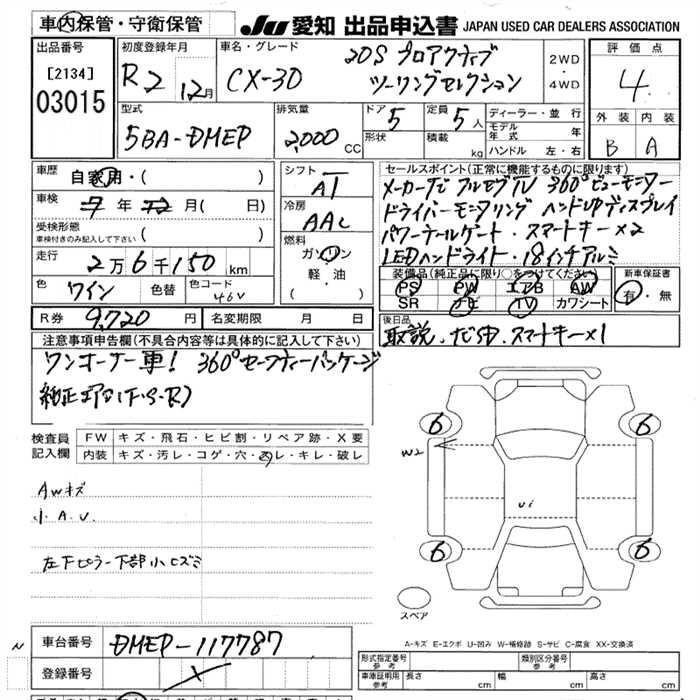 車内保管・守衛保管
JU 愛知 出品申込書 JAPAN USED CAR DEALERS ASSOCIATION
出品番号
[2134]
03015
初度登録年月
R2 12月
車名・グレード
CX-30
20S プロアクティブ
ツーリングセレクション
2WD
・
4WD
評価点
4
外装 内装
B A
型式
5BA-DMEP
排気量
2,000 CC
ドア 5
形状
定員 5人
積載 kg
ディーラー・並行
モデル年式 年
ハンドル 左・右
車歴
自家用・( )
車検
7年12月( 日)
受検形態
車検付きのみ記入して下さい ( )
走行
2万6千150km
色 ワイン 色替 色コード 46V
シフト
AT
冷房
AAC
燃料
ガソリン
軽・油
( )
セールスポイント(正常に機能するものに限ります)
メーカーナビ フルセグTV 360°ビューモニター
ドライバーモニタリング ヘッドUPディスプレイ
パワーテールゲート・スマートキー×2
LEDヘッドライト・18インチアルミ
装備品(純正品に限り○をつけてください)
PS PW エアB AW
SR ナビ TV カワシート
新車保証書
有・無
R券 9,720円 名変期限 月 日
後日品
取説・ナビSD・スマートキー×1
注意事項申告欄(不具合内容等は具体的に記入して下さい)
ワンオーナー車! 360°セーフティーパッケージ
純正エアロ(F・S・R)
検査員
記入欄
FW キズ・飛石・ヒビ割・リペア跡・X要
内装 キズ・汚レ・コゲ・穴・スレ・キレ・破レ
AWキズ
小A.U.
左下ピラー下部小ヒズミ
6 6
W2
Ui
6 6
スペア
A-キズ E-エクボ U-凹み W-補修跡 S-サビ C-腐食 XX-交換済
N
車台番号 DMEP-117787
登録番号
形式指定番号
参考
類別区分番号
参考
車庫証明
参考
長さ cm 幅 cm 高さ cm